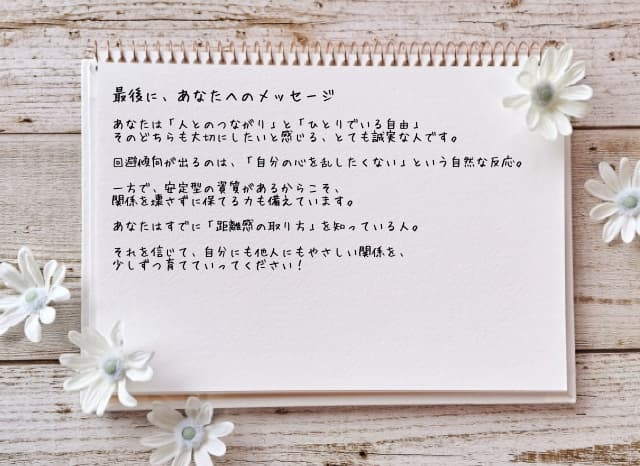 最後に、あなたへのメッセージ
あなたは「人とのつながり」と「ひとりでいる自由」
そのどちらも大切にしたいと感じる、とても誠実な人です。
回避傾向が出るのは、「自分の心を乱したくない」という自然な反応。
一方で、安定型の資質があるからこそ、
関係を壊さずに保てる力も備えています。
あなたはすでに「距離感の取り方」を知っている人。
それを信じて、自分にも他人にもやさしい関係を、
少しずつ育てていってください！